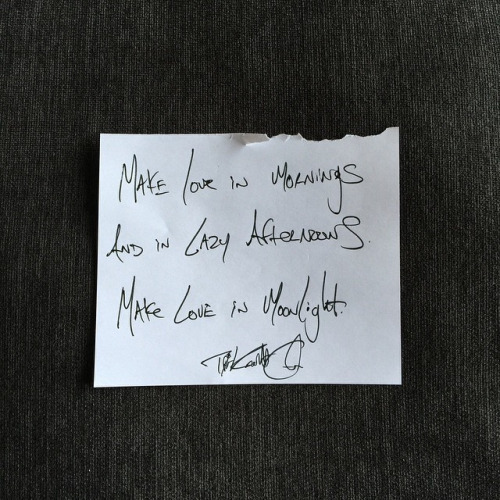 Make Love in Mornings
And in Lazy Afternoons.
Make Love in Moonlight.